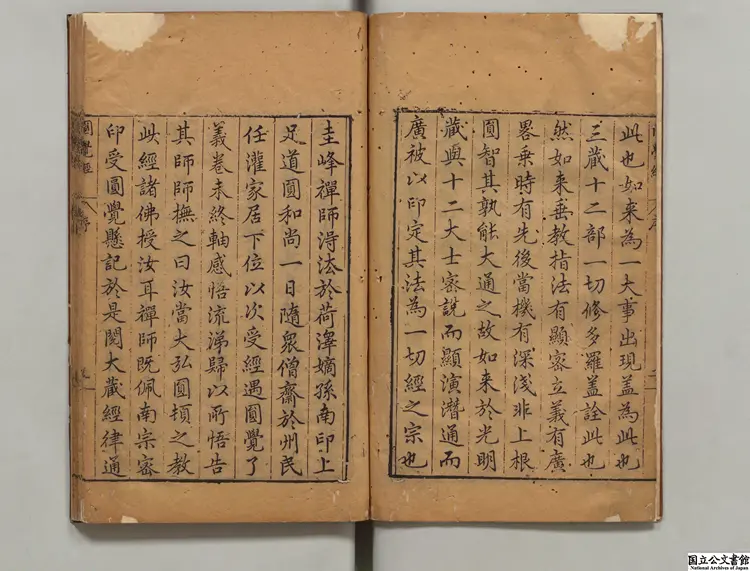 此也如来為一大事出現盖為此也
三藏十二部一切修多羅盖詮此也
然如来垂教指法有顯密立義有廣
畧乗時有先後當機有深淺非上根
圓智其孰能大通之故如来於光明
藏與十二大士密說而顯演潜通而
廣被以印定其法為一切經之宗也
圭峰禪師淂法於荷澤嫡孫南印上
足道圓和尚一日隨衆僧齋於州民
任灌家居下位以次受經遇圓覺了
義卷未終軸感悟流涕歸以所悟告
其師師撫之曰汝當大弘圓頓之教
此經諸佛授汝耳禪師既佩南宗密
印受圓覺懸記於是閱大藏經律通
圓覺經
国立公文書館
National Archives of Japan